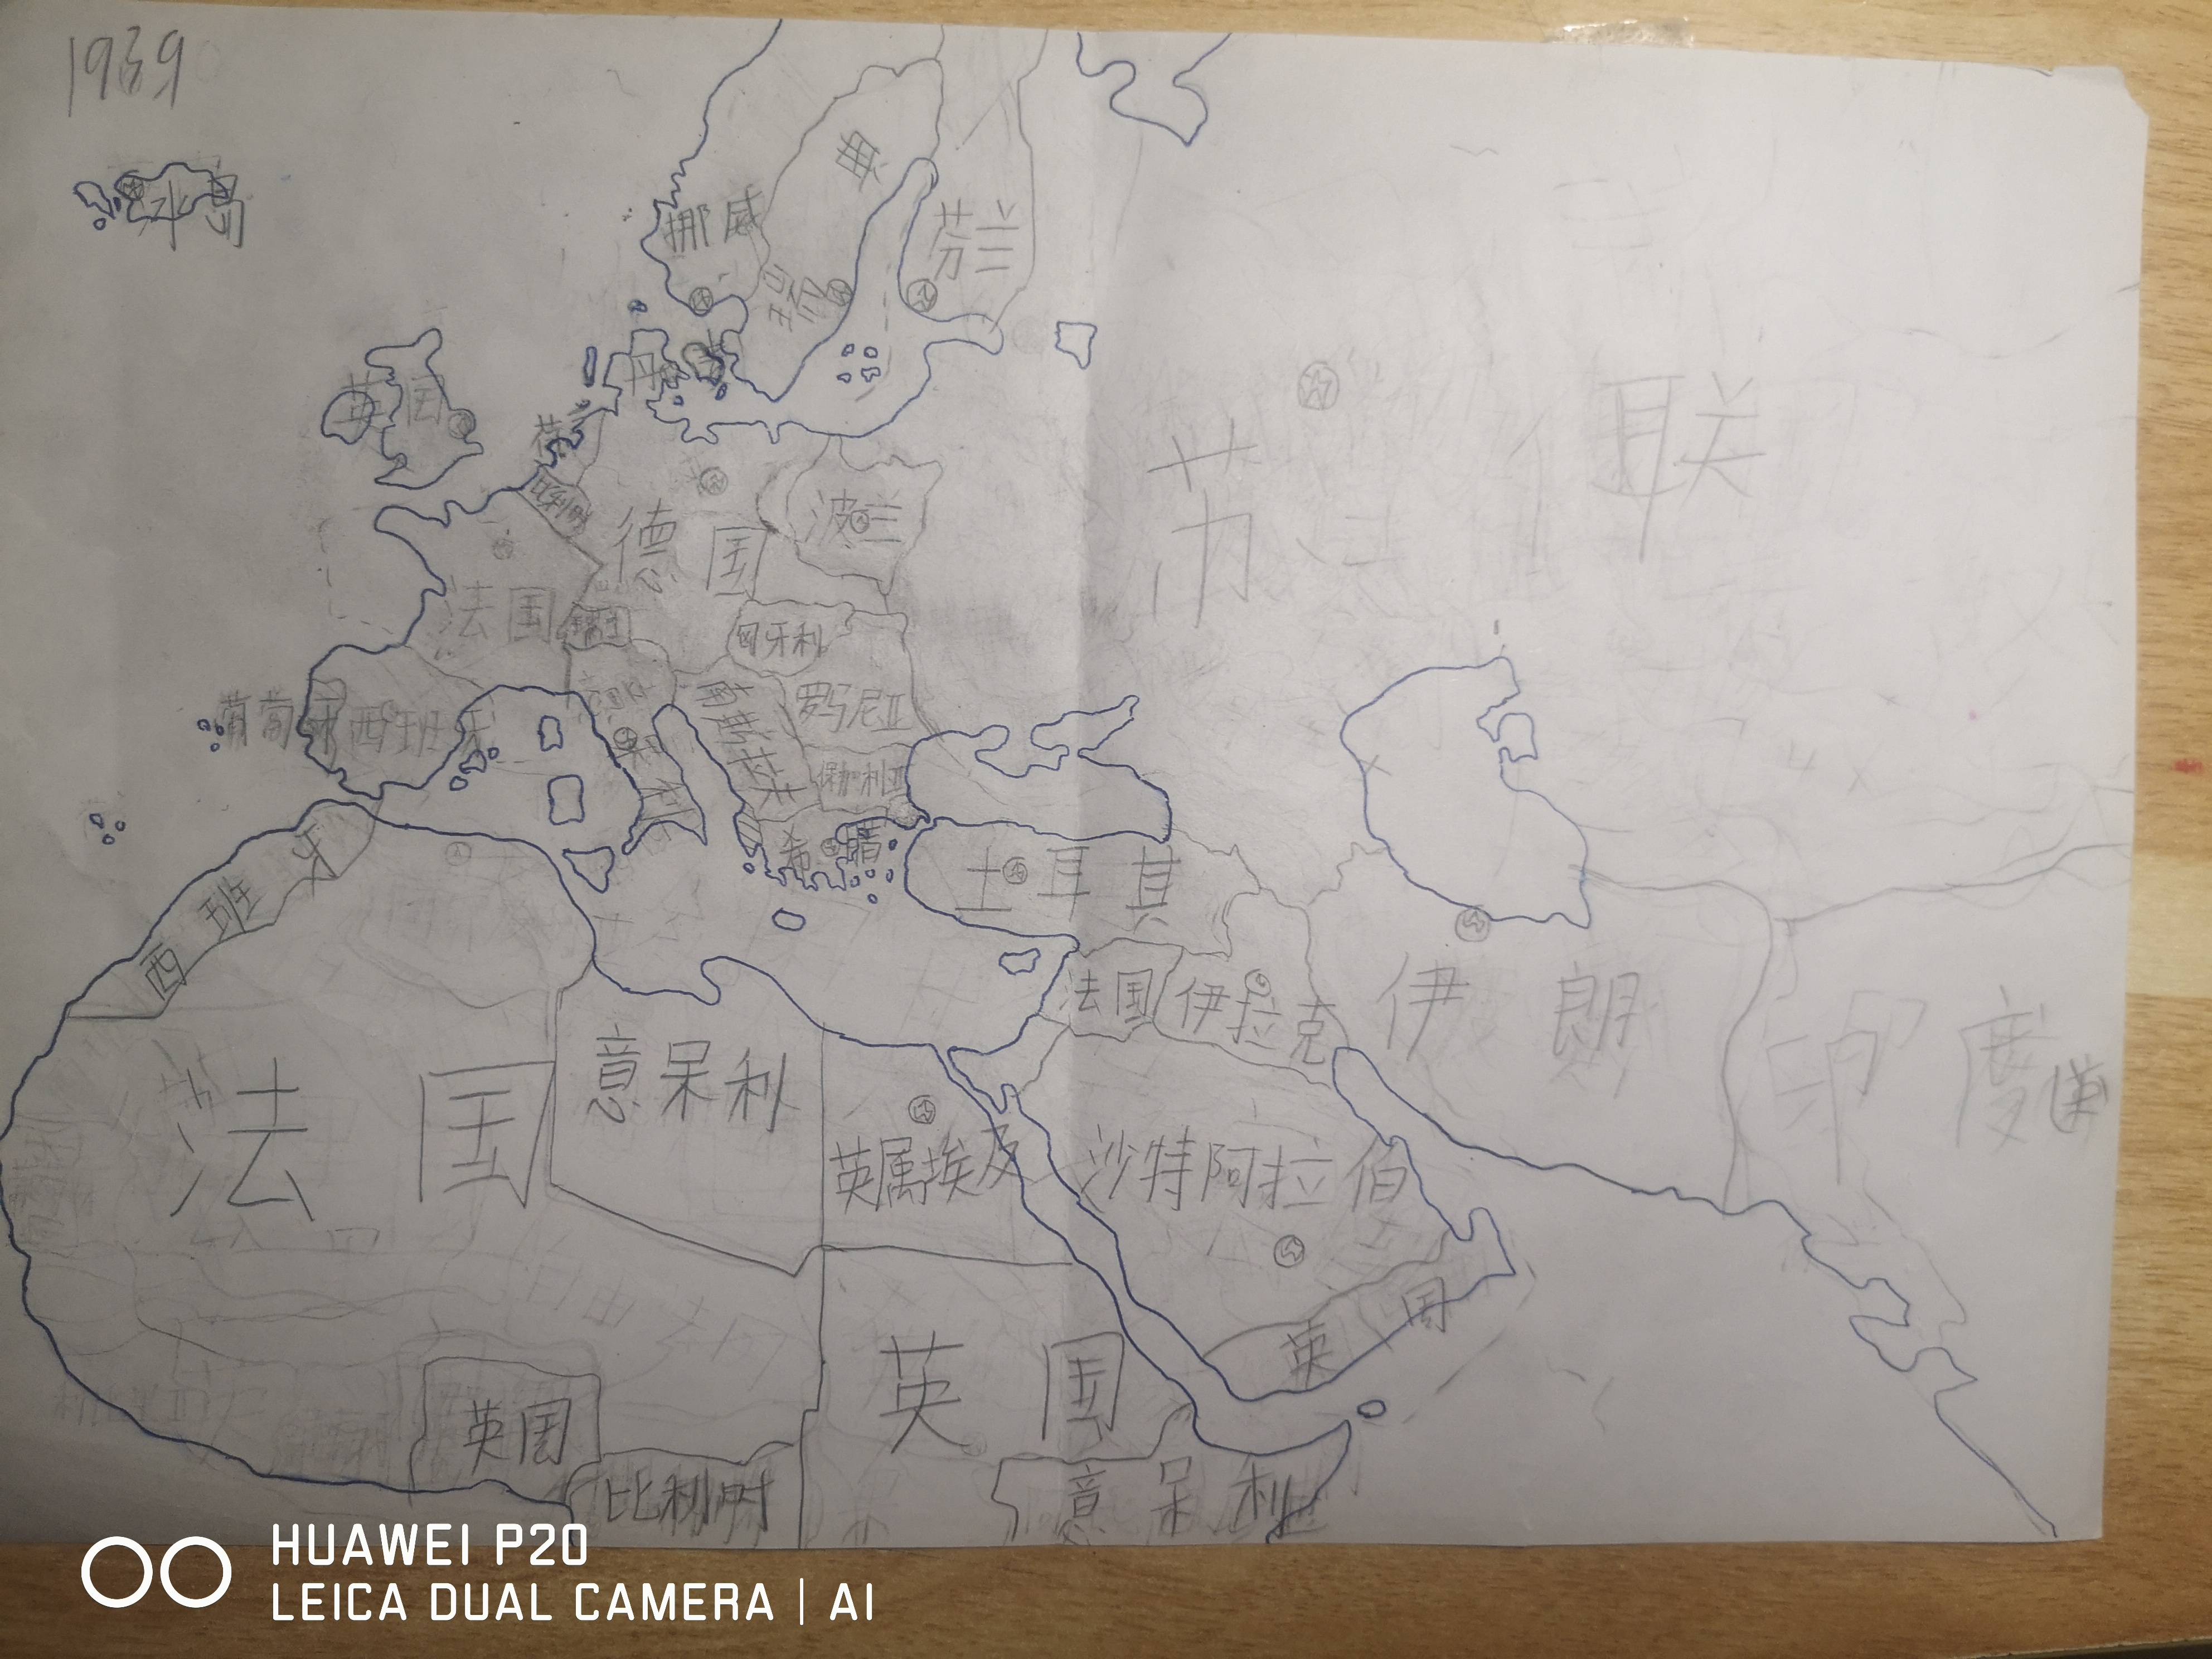 1939
冰岛
挪威
芬兰
丹
英国
荷
比利时
德国
波兰
苏
联
法国
瑞士
匈牙利
葡萄牙
西班牙
南
罗马尼亚
保加利亚
希腊
土耳其
西班牙
法国
伊拉克
伊朗
印度
英
法国
意呆利
英属埃及
沙特阿拉伯
英国
英国
英国
比利时
意呆利
HUAWEI P20
LEICA DUAL CAMERA | AI